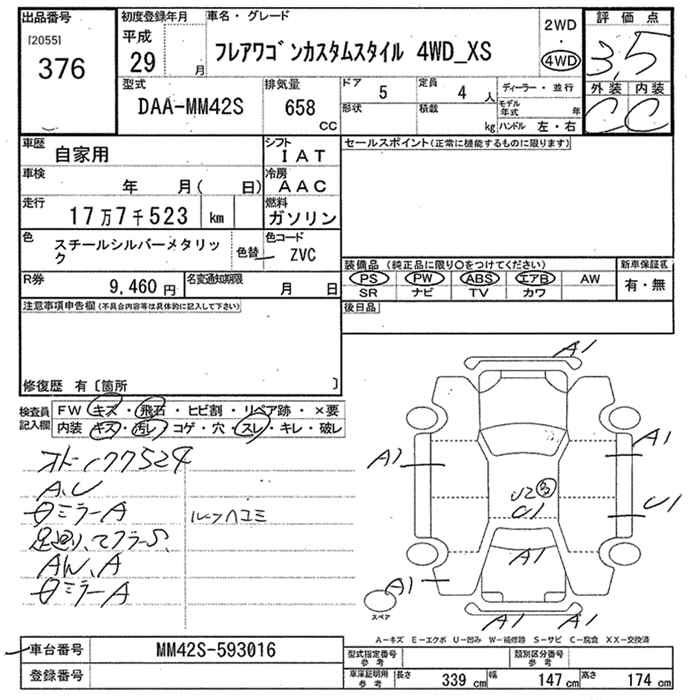 出品番号
[2055]
376
初度登録年月
平成
29 月
車名・グレード
フレアワゴンカスタムスタイル 4WD_XS
2WD
・
4WD
評価点
3.5
外装 内装
C C
型式
DAA-MM42S
排気量
658 CC
ドア 5
形状
定員 4 人
積載 kg
ディーラー・並行
モデル年式 年
ハンドル 左・右
車歴
自家用
シフト
IAT
車検
年 月( 日)
冷房
AAC
走行
17万7千523 km
燃料
ガソリン
色
スチールシルバーメタリック
色替
色コード
ZVC
R券
9,460 円
名変通知期限
月 日
セールスポイント(正常に機能するものに限ります)
装備品 (純正品に限り○をつけてください)
PS PW ABS エアB AW
SR ナビ TV カワ
新車保証書
有・無
後日品
注意事項申告欄(不具合内容等は具体的に記入して下さい)
修復歴 有〔箇所 〕
検査員記入欄
FW キズ・飛石・ヒビ割・リペア跡・×要
内装 キズ・汚レ・コゲ・穴・スレ・キレ・破レ
オドー177524
A.U
日ミラーA
ルーフハコミ
足廻り、マフラーS
AW、A
日ミラーA
A1
A1
A1
U2
U1
U1
A1
A1
A1 A1
スペア
A－キズ E－エクボ U－凹み W－補修跡 S－サビ C－腐食 XX－交換済
車台番号
MM42S-593016
登録番号
型式指定番号
参考
類別区分番号
参考
車庫証明用
参考
長さ 339 cm 幅 147 cm 高さ 174 cm